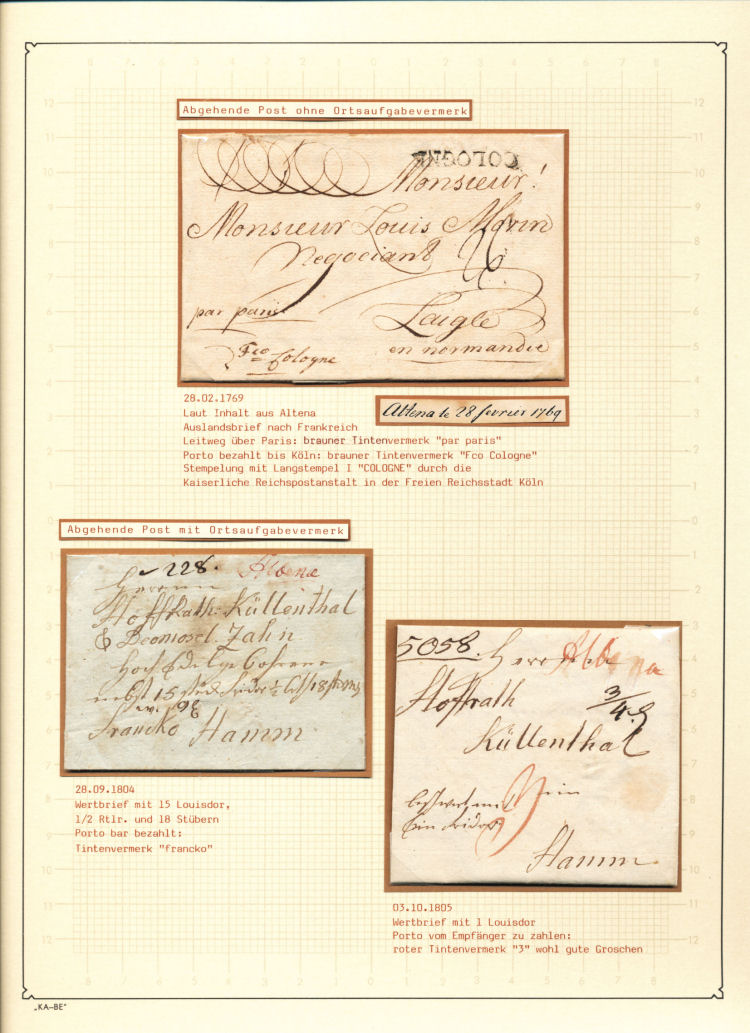 Abgehende Post ohne Ortsaufgabevermerk
COLOGNE
Monsieur!
Monsieur Louis Morin
Negociant
par paris
Laigle
Fco Cologne
en normandie
28.02.1769
Laut Inhalt aus Altena
Altena le 28 fevrier 1769
Auslandsbrief nach Frankreich
Leitweg über Paris: brauner Tintenvermerk "par paris"
Porto bezahlt bis Köln: brauner Tintenvermerk "Fco Cologne"
Stempelung mit Langstempel I "COLOGNE" durch die
Kaiserliche Reichspostanstalt in der Freien Reichsstadt Köln
Abgehende Post mit Ortsaufgabevermerk
228. Altena
Herrn
Hoffrath Küllenthal
& Zahn
nebst 15
francko Hamm
28.09.1804
Wertbrief mit 15 Louisdor,
1/2 Rtlr. und 18 Stübern
Porto bar bezahlt:
Tintenvermerk "francko"
5058. Herr Altena
Hoffrath 3/4
Küllenthal
3
Hamm
03.10.1805
Wertbrief mit 1 Louisdor
Porto vom Empfänger zu zahlen:
roter Tintenvermerk "3" wohl gute Groschen
„KA-BE"